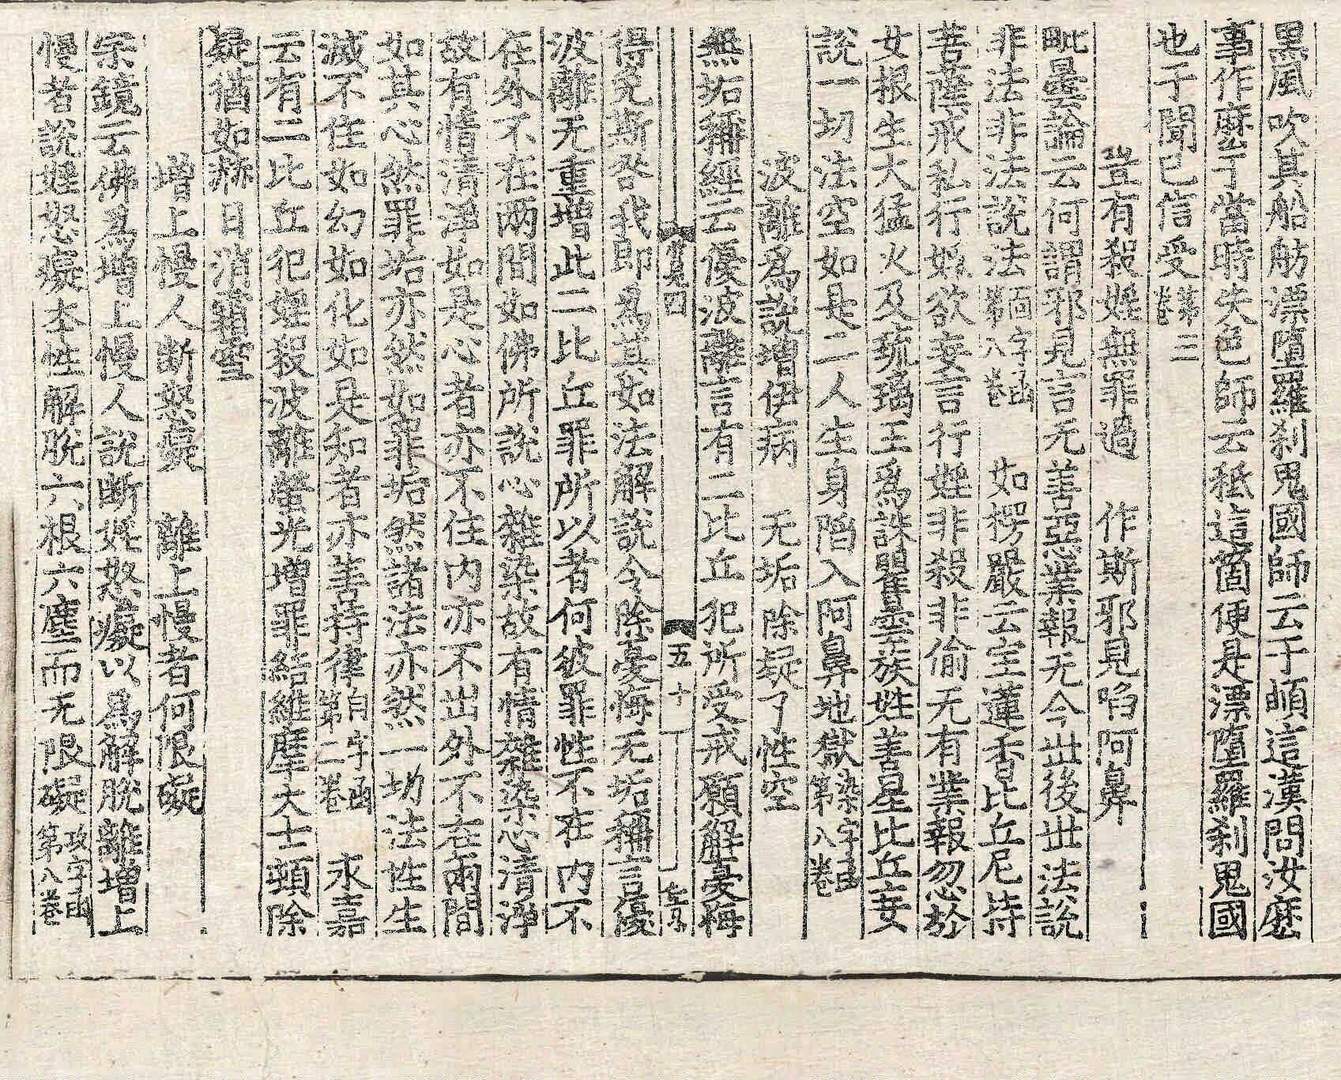 黑風吹其船舫漂墮羅刹鬼國師云于頔這漢問汝麽
事作麽于當時失色師云秖這箇便是漂墮羅刹鬼國
也于聞已信受第三卷
豈有殺婬無罪過 作斯邪見陷阿鼻
毗曇論云何謂邪見言无善惡業報无今世後世法說
非法非法說法面字函第八卷 如楞嚴云宝蓮香比丘尼持
菩薩戒私行婬欲妄言行婬非殺非偷无有業報忽於
女根生大猛火及琉璃王爲誅瞿曇族姓善星比丘妄
說一切法空如是二人生身陷入阿鼻地獄染字函第八卷
波離爲說增伊病 无垢除疑了性空
無垢稱經云優波離言有二比丘犯所受戒願解憂悔
五十
得免斯咎我即爲其如法解說令除憂悔无垢稱言優
波離无重增此二比丘罪所以者何彼罪性不在內不
在外不在两間如佛所說心雜染故有情雜染心清淨
故有情清淨如是心者亦不住內亦不出外不在兩間
如其心然罪垢亦然如罪垢然諸法亦然一切法性生
滅不住如幻如化如是知者亦善持律自字函第二卷 永嘉
云有二比丘犯婬殺波離螢光增罪結維摩大士頓除
疑猶如赫日消霜雪
增上慢人断怒癡 離上慢者何限礙
宗鏡云佛爲增上慢人說断婬怒癡以爲解脫離增上
慢者說婬怒癡本性解脫六根六塵而无限礙攻字函第八卷